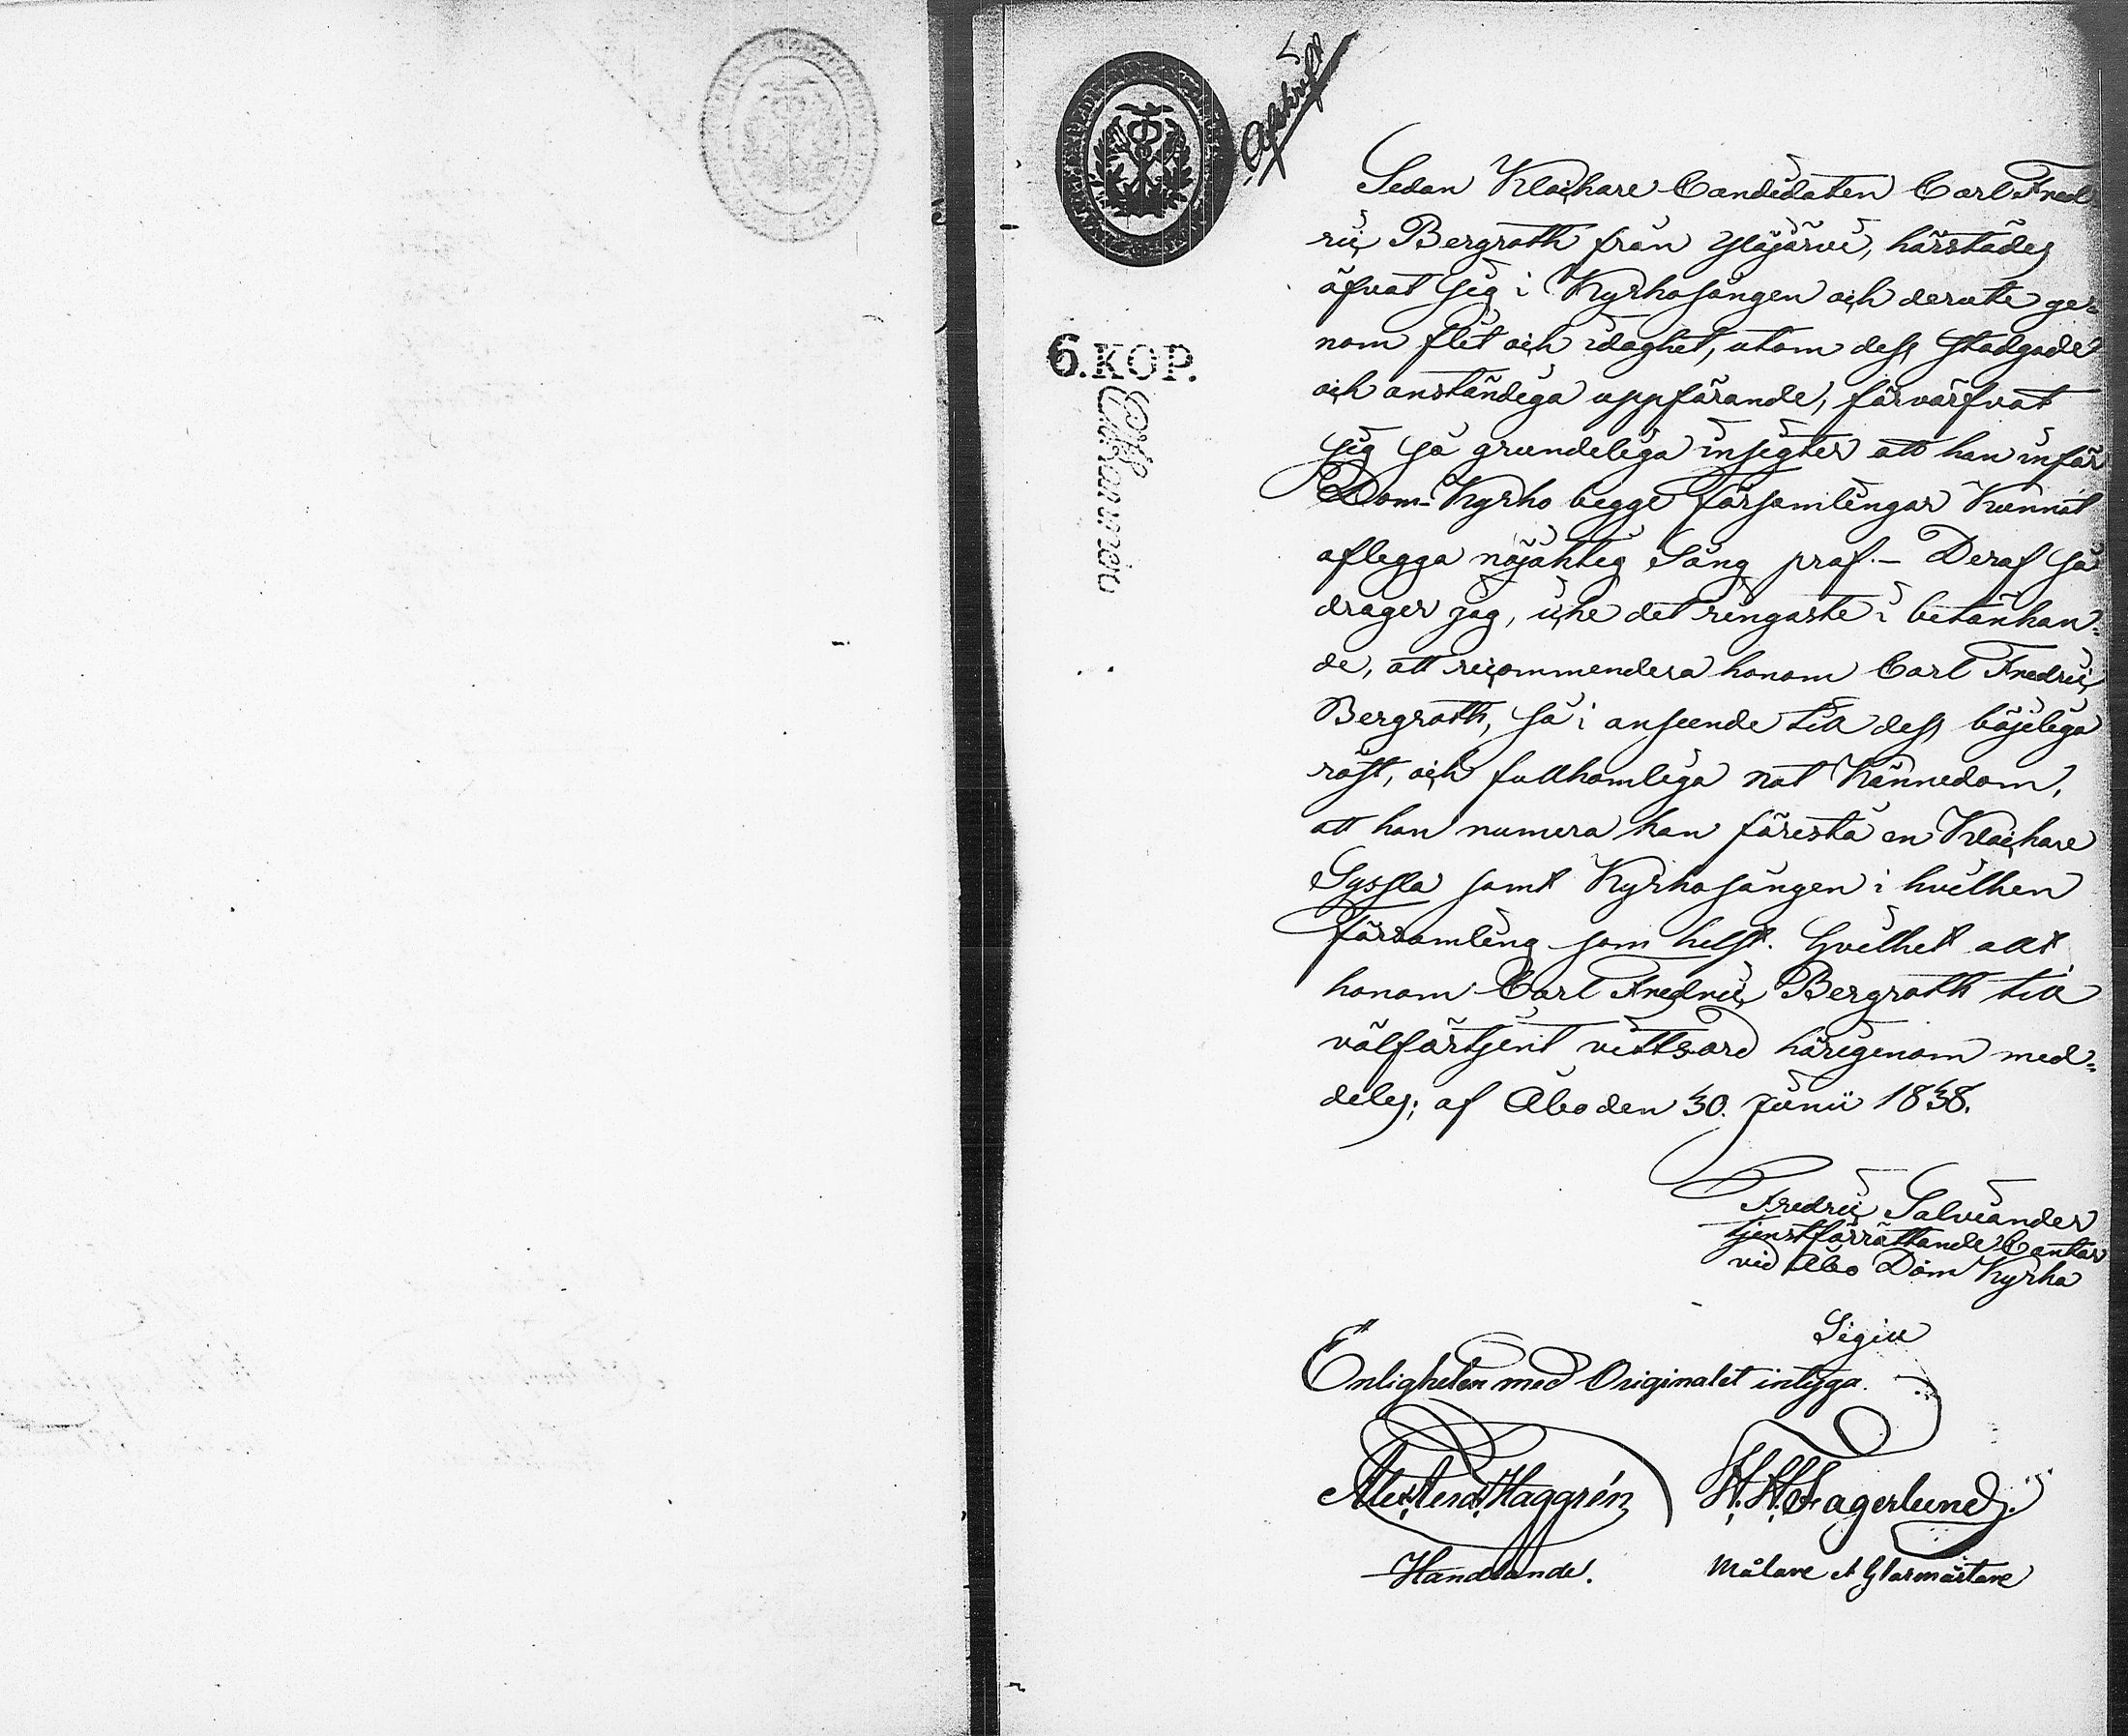 Afskrift
6. KOP.
Sedan Klockare Candidaten Carl Fred
ric Bergroth från Ylöjärvi, härstädes
öfvat sig i Kyrkosången och deruti ge=
nom flit och idoghet, utom dess stadgade
och anständiga uppförande, förvärfvat
sig så grundeliga insigter att han inför
Dom-Kyrko begge Församlingar kunnat
aflegga nöjaktig Sång prof.- Deraf så
drager jag, icke det ringaste i betänkan=
de, att recommendera honom Carl Fredric
Bergroth, så i anseende till dess böjeliga
röst, och fullkomliga not kännedom,
att han numera kan förestå en Klockare
Syssla samt Kyrkosången i hvilken
församling som helst. Hvilket allt
honom Carl Fredric Bergroth till
välförtjent vittsord härigenom med=
deles; af Åbo den 30. Junii 1838.
Fredric Salviander
tjenstförrättande Cantor
vid Åbo Dom Kyrka
Sigill
Enligheten med Originalet intyga.
Alexand. Haggrén H. H. Fagerlund.
Handlande. Målare et Glasmästare